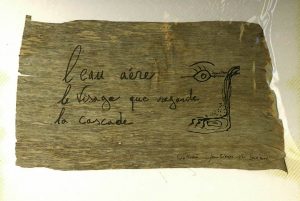 l'eau aère
le visage que regarde
la cascade